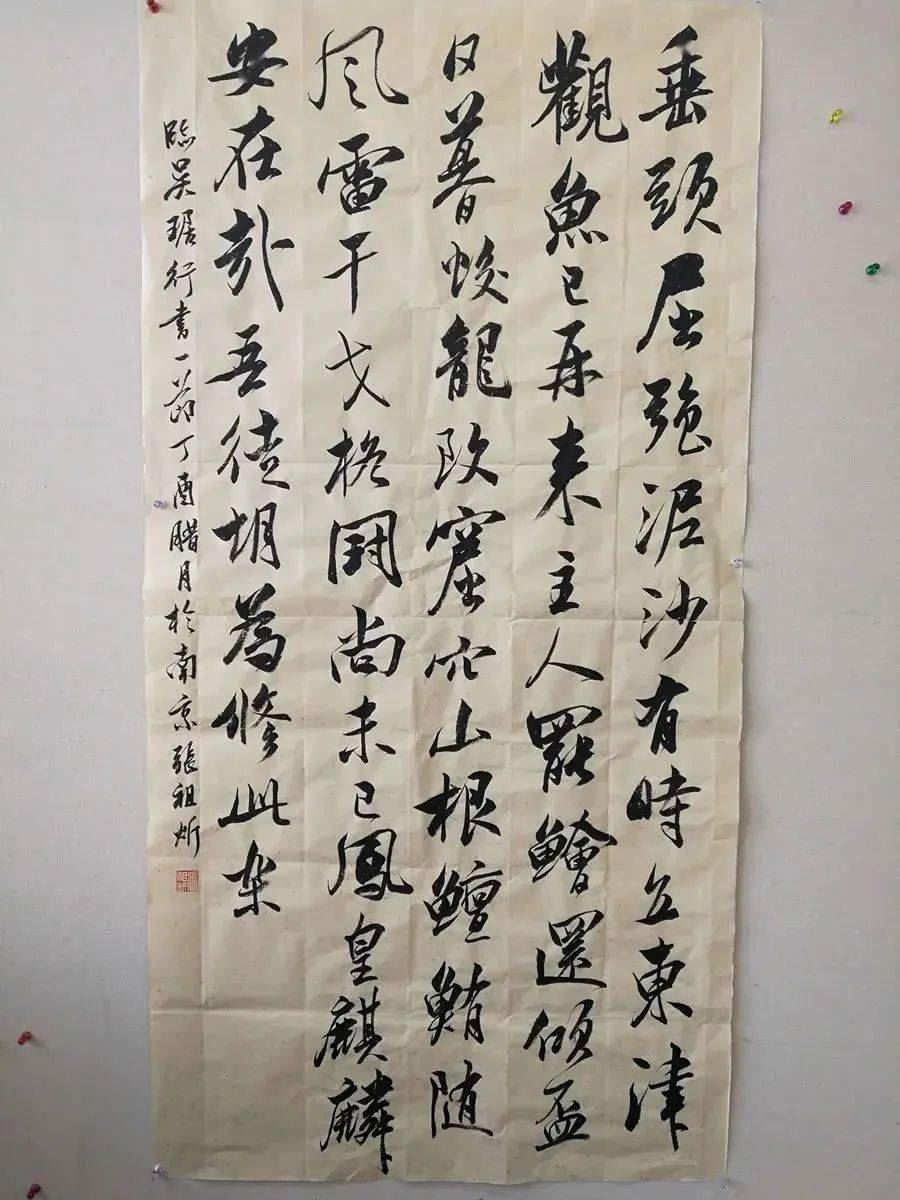 垂頭屈强泥沙有時立東津
觀魚已再来主人罷鱠還傾盃
日暮蛟龍改窟穴山根鱣鮪随
風雷干戈格鬪尚未已鳳皇麒麟
安在哉吾徒胡為縱此樂
臨吴琚行書一節丁酉腊月於南京張祖炘